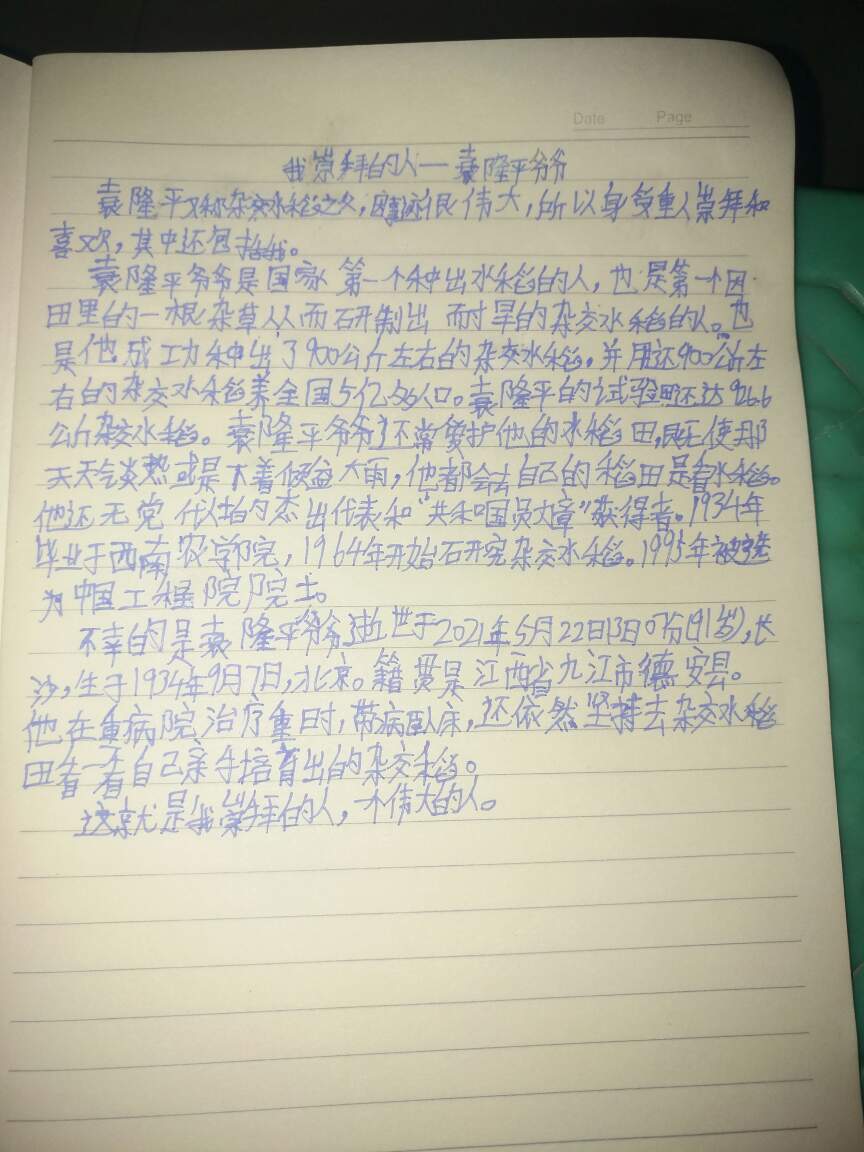 Date Page
我崇拜的人——袁隆平爷爷
袁隆平又称杂交水稻之父，因事迹很伟大，所以身受重人崇拜和
喜欢，其中还包括我。
袁隆平爷爷是国家第一个种出水稻的人，也是第一个因
田里的一根杂草从而研制出耐旱的杂交水稻的人。也
是他成功种出了900公斤左右的杂交水稻，并用这900公斤左
右的杂交水稻养全国5亿多人口。袁隆平的试验田还达926.6
公斤杂交水稻。袁隆平爷爷还常爱护他的水稻田，既使那
天天气炎热或是下着倾盆大雨，他都会去自己的稻田是看水稻。
他还无党 杰出代表和“共和国员文章”获得者。1934年
毕业于西南农学院，1964年开始研究杂交水稻。1995年被选
为中国工程院院士。
不幸的是袁隆平爷爷逝世于2021年5月22日13日07分(91岁)，长
沙，生于1934年9月7日，北京。籍贯是江西省九江市德安县。
他在重病院治疗重时，带病卧床，还依然坚持去杂交水稻
田看一看自己亲手培育出的杂交稻。
这就是我崇拜的人，一个伟大的人。